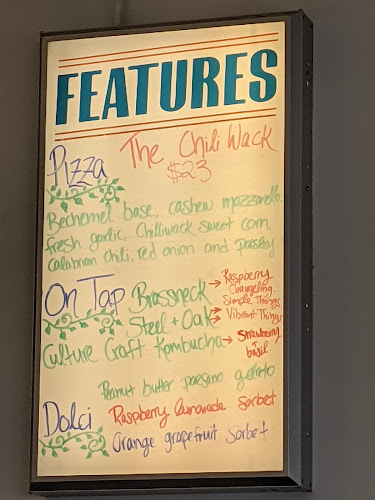 FEATURES
Pizza The Chili Wack
$23
Bechemel base, cashew mozzarella,
fresh garlic, Chilliwack sweet corn,
calabrian chili, red onion and parsley
On Tap Brassneck → Raspberry
Changeling,
Simple Things
Steel + Oak → Vibrant Things
Culture Craft Kombucha → Strawberry
basil
Peanut butter paesano gelato
Dolci Raspberry lemonade sorbet
Orange grapefruit sorbet